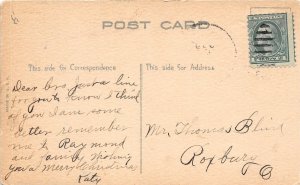 POST CARD
This side for Correspondence
This side for Address
Dear Bro Just a line
you know I think
of you I am some
better remember
me to Raymond
and family wishing
you a merry
Katy
Mr. Thomas
Roxbury
O